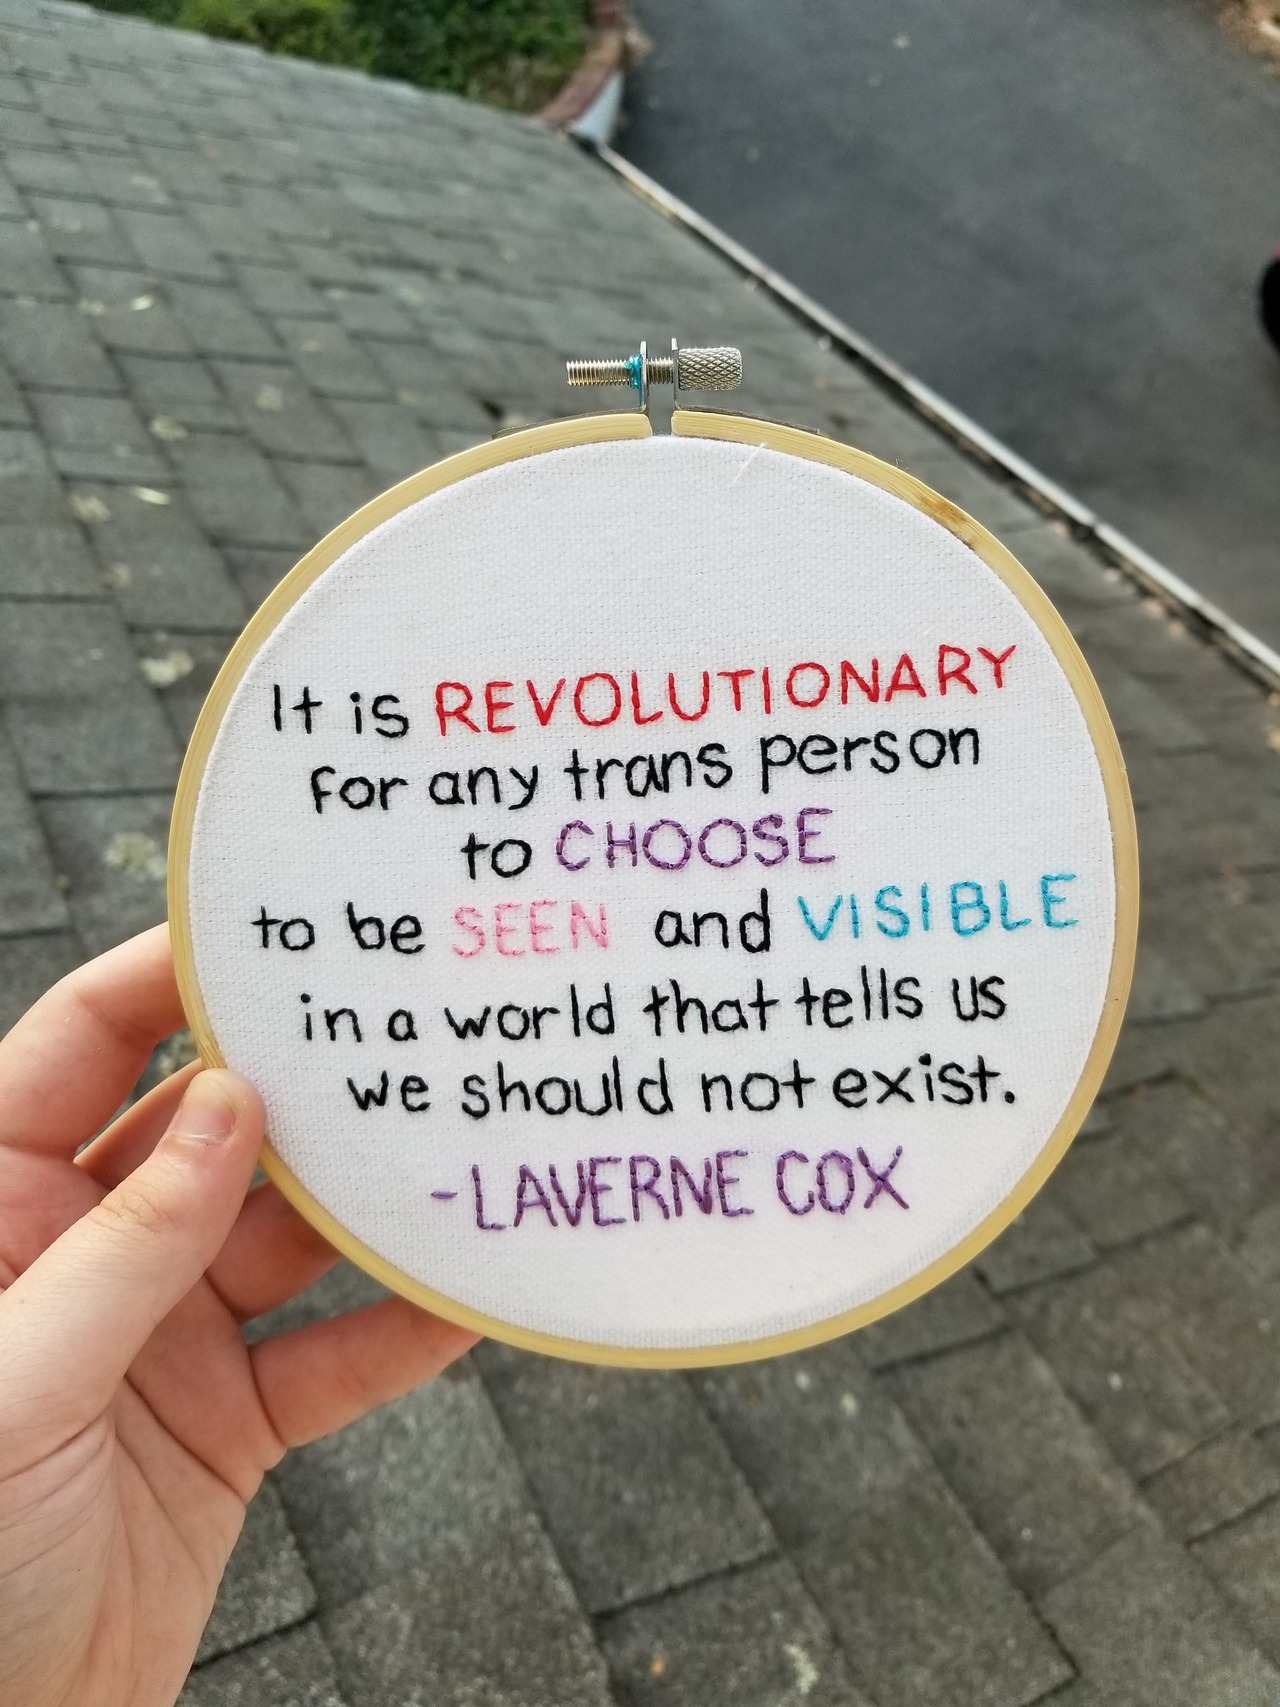 It is REVOLUTIONARY
for any trans person
to CHOOSE
to be SEEN and VISIBLE
in a world that tells us
we should not exist.
-LAVERNE COX